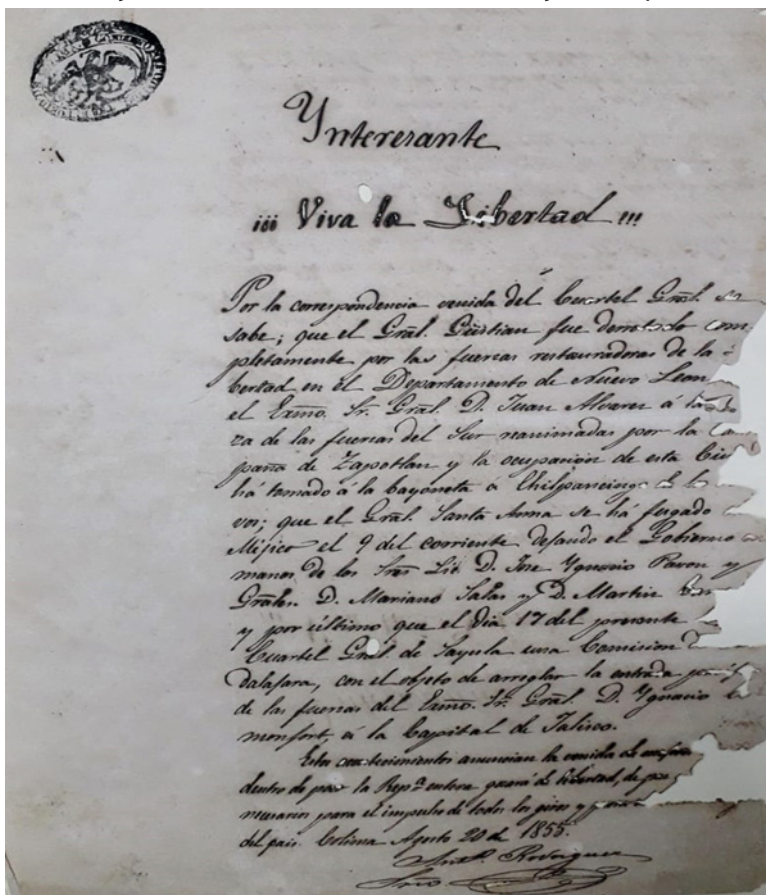 Ynteresante
¡¡¡ Viva la Libertad !!!
Por la correspondencia venida del Cuartel Gral. se
sabe; que el Gral. Güitian fue derrotado com
pletamente por las fuerzas restauradoras de la
bertad en el Departamento de Nuevo Leon
el Exmo. Sr. Gral. D. Juan Alvarez á la
za de las fuerzas del Sur reanimadas por la Cam
paña de Zapotlan y la ocupación de esta Ciu
há tomado á la bayoneta á Chilpancingo
vos; que el Gral. Santa Anna se há fugado
Méjico el 9 del corriente dejando el Gobierno en
manos de los Sres Lic. D. Jose Ygnacio Pavon y
Grales. D. Mariano Salas y D. Martin
y por último que el dia 17 del presente
Cuartel Gral. de Sayula una Comision
dalajara, con el objeto de arreglar la entrada
de las fuerzas del Exmo. Sr. Gral. D. Ygnacio
monfort, á la Capital de Jalisco.
Estos acontecimientos anuncian la venida de
dentro de poco la Repa. entera gozará de libertad, de paz
necesarios para el impulso de todos los giros y
del pais. Colima Agosto 20 de 1855.
Rodriguez
Srio